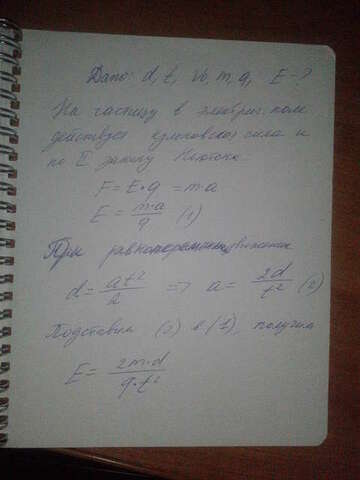 Дано: d, t, v₀, m, q, E-?
На частицу в электрич. поле
действует кулоновская сила и
по II закону Ньютона
F = E•q = m•a
E = m•a/q (1)
При движении
d = at²/2 => a = 2d/t² (2)
Подставим (2) в (1), получим
E = 2m•d/q•t²